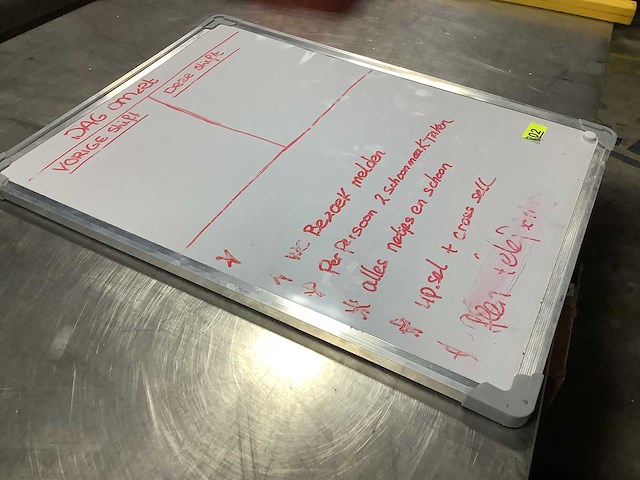 DAG omzet
VORIGE shift
Deze shift
Bezoek melden
Per persoon 2 schoonmaak taken
alles netjes en schoon
up.sel + cross sell
Geen
102